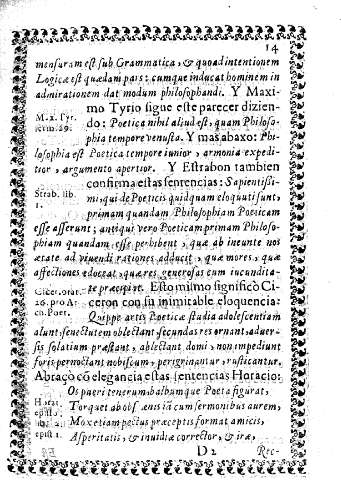 14
mensuram est sub Grammatica, & quoad intentionem
Logicæ est quædam pars: cumque inducat hominem in
admirationem dat modum philosophandi. Y Maxi-
mo Tyrio sigue este parecer dizien-
do: Poetica nihil aliud est, quam Philoso-
phia tempore venusta. Y mas abaxo: Phi-
losophia est Poetica tempore iunior, armonia expedi-
tior, argumento apertior. Y Estrabon tambien
confirma estas sentencias: Sapientissi-
mi, qui de Poeticis quidquam eloquuti sunt,
primam quandam Philosophiam Poeticam
esse asserunt; antiqui vero Poeticam primam Philoso-
phiam quandam esse perhibent, quæ ab ineunte nos
ætate ad viuendi rationes adducit, quæ mores, quæ
affectiones edoceat, quæ res generosas cum iucundita-
te præcipiat. Esto mismo significò Ci-
ceron con su inimitable eloquencia:
Quippe artis Poeticæ studia adolescentiam
alunt, senectutem oblectant, secundas res ornant, aduer-
sis solatium præstant, ablectant domi, non impediunt
foris pernoctant nobiscum, peregrinantur, rusticantur.
Abraçò cō elegancia estas sentencias Horacio:
Os pueri tenerum balbumque Poeta figurat,
Torquet ab obscœnis iā cum sermonibus aurem,
Mox etiam pectus præceptis format amicis,
Asperitatis, & inuidiæ corrector, & iræ,
D 2
Rec-
Max. Tyr.
serm. 29.
Strab. lib.
1.
Cicer. orat.
26. pro Ar
ch. Poet.
Horat.
epist.
epist 1.